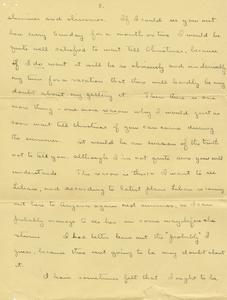 2.
shinines and shininess. If I could see you out
here every Sunday for a month or two I would be
quite well satisfied to wait till Christmas, because
if I do want it will be so obviously and undeniably
my time for a vacation that there will hardly be any
doubt about my getting it. Then there is one
more thing - one more reason why I would just as
soon wait till christmas if you can come during
the summer. It would be an evasion of the truth
not to tell you, although I am not quite sure you will
understand. The reason is this: I want to see
Helen, and according to latest plans Helen is coming
out here to Arizona again next summer, so I can
probably manage to see her on some ways before she
I had better leave out the "probably" I
guess, because there isn't going to be any doubt about
it.
I have sometimes felt that I ought to be